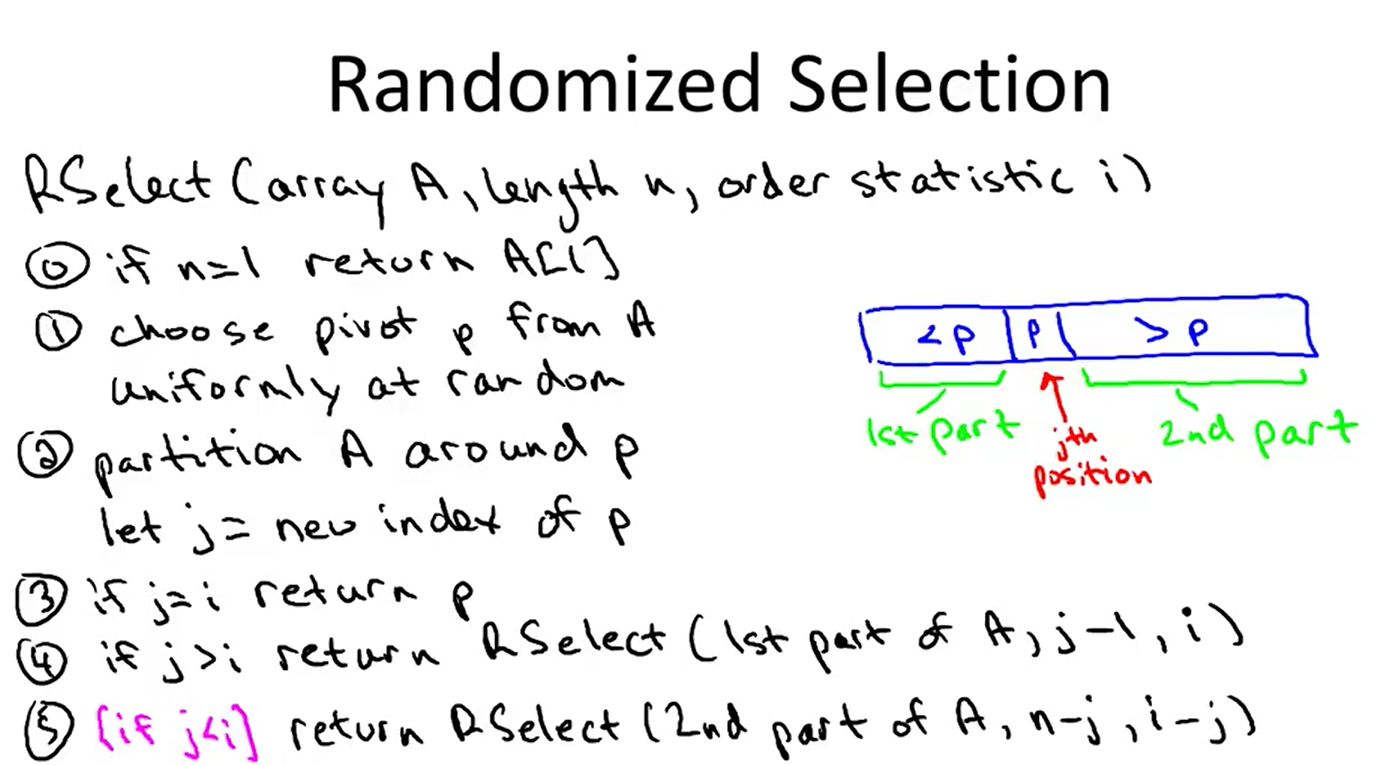 Randomized Selection
RSelect (array A, length n, order statistic i)
⓪ if n=1 return A[1]
① choose pivot p from A
uniformly at random
② partition A around p
let j = new index of p
③ if j=i return p
④ if j>i return RSelect (1st part of A, j-1, i)
⑤ [if j<i] return RSelect (2nd part of A, n-j, i-j)
<p p >p
1st part
jth
position
2nd part